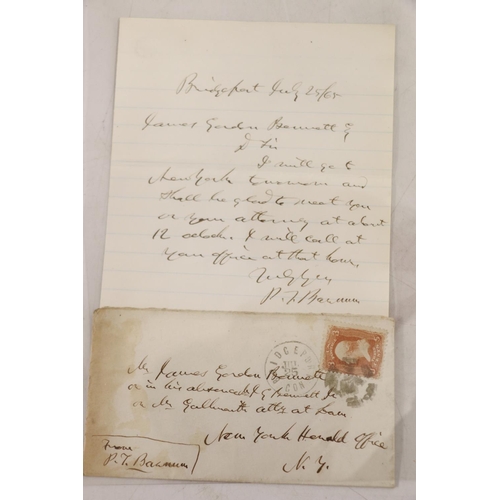 Bridgeport July 25/65
James Gordon Bennett Eq
D Sir
I will go to
New York tomorrow and
shall be glad to meet you
or your attorney at about
12 oclock. I will call at
your office at that hour,
Truly Yrs
P. T. Barnum
BRIDGEPORT
CON
Mr James Gordon Bennett
or in his absence J G Bennett Jr
or Mr Galbraith atty at Law
New York Herald Office
N. Y.
From
P. T. Barnum